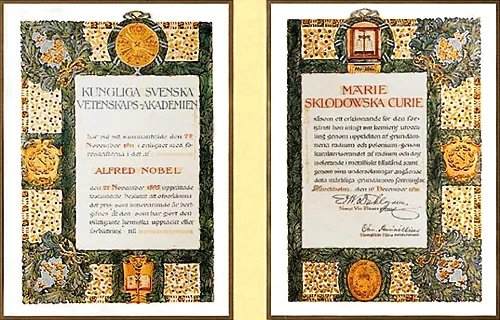 KUNGLIGA SVENSKA
VETENSKAPS-AKADEMIEN
har vid sitt sammanträde den 7
November 1911 i enlighet med före-
skrifterna i det af
ALFRED NOBEL
den 27 November 1895 upprättade
testamente beslutit att
det pris som innevarande år bort-
gifves åt den som har gjort den
viktigaste kemiska upptäckt eller
förbättring till
MARIE
SKLODOWSKA CURIE
såsom ett erkännande för den för-
tjänst hon inlagt om kemiens utveck-
ling genom upptäckten af grundäm-
nena radium och polonium genom
karakteriserandet af radium och dess
isolerande i metalliskt tillstånd samt
genom sina undersökningar angående
detta märkliga grundämnes föreningar
Stockholm den 10 December 1911